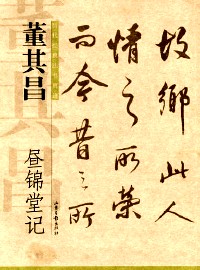 故鄉此人
情之所榮
而今昔之所
董其昌
昼锦堂记